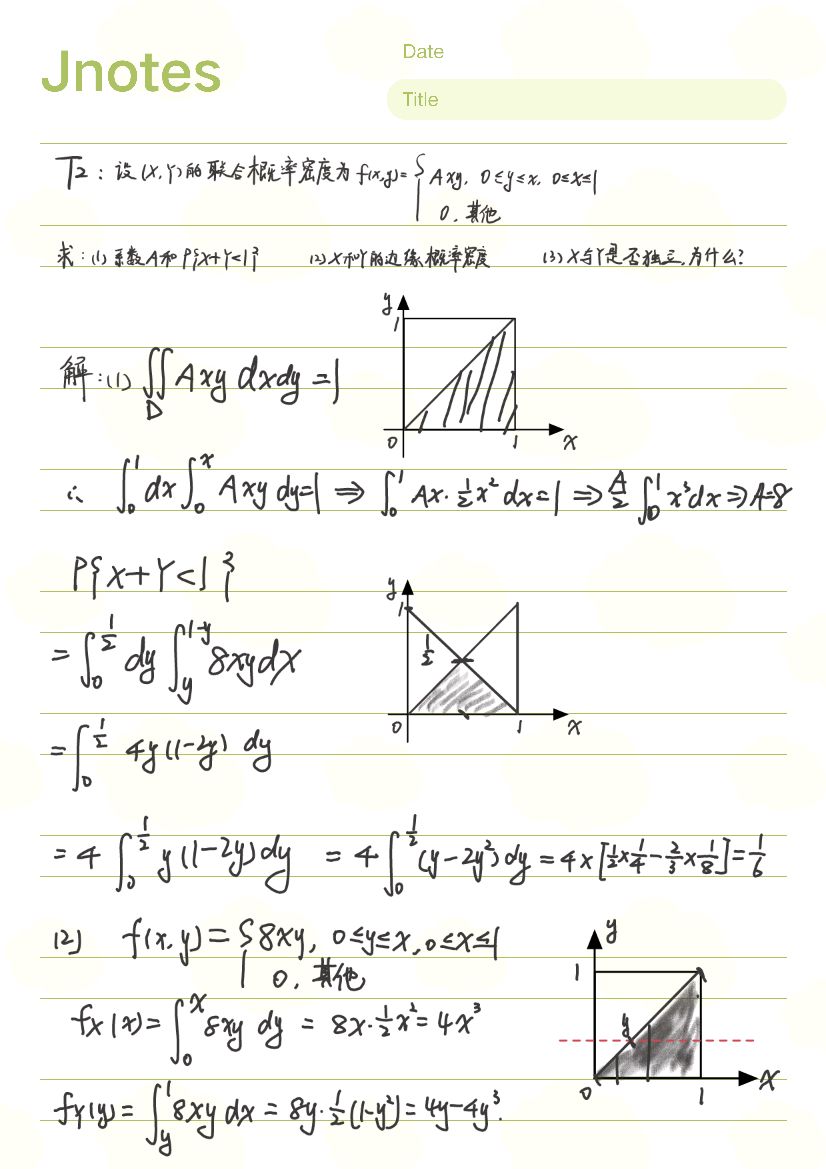 Jnotes
Date
Title
T2：设(X,Y)的联合概率密度为f(x,y)={Axy, 0≤y≤x, 0≤x≤1
0, 其他
求：(1)系数A和P{X+Y<1} (2)X和Y的边缘概率密度 (3)X与Y是否独立,为什么?
y
1
0
1
x
解：(1) ∬_D Axy dxdy = 1
∴ ∫_0^1 dx ∫_0^x Axy dy=1 ⇒ ∫_0^1 Ax·1/2 x² dx=1 ⇒ A/2 ∫_0^1 x³dx ⇒ A=8
P{X+Y<1}
= ∫_0^{1/2} dy ∫_y^{1-y} 8xydx
y
1
1/2
0
1
x
= ∫_0^{1/2} 4y(1-2y) dy
= 4 ∫_0^{1/2} y(1-2y)dy = 4 ∫_0^{1/2} (y-2y²)dy = 4×[1/2×1/4-2/3×1/8]=1/6
(2) f(x,y) = {8xy, 0≤y≤x, 0≤x≤1
0, 其他
f_X(x)= ∫_0^x 8xy dy = 8x·1/2 x² = 4x³
f_Y(y) = ∫_y^1 8xy dx = 8y·1/2(1-y²)= 4y-4y³.
y
1
y
0
1
x